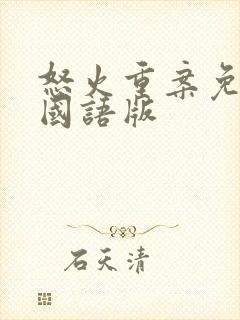 怒火重案免
國語版
石天清